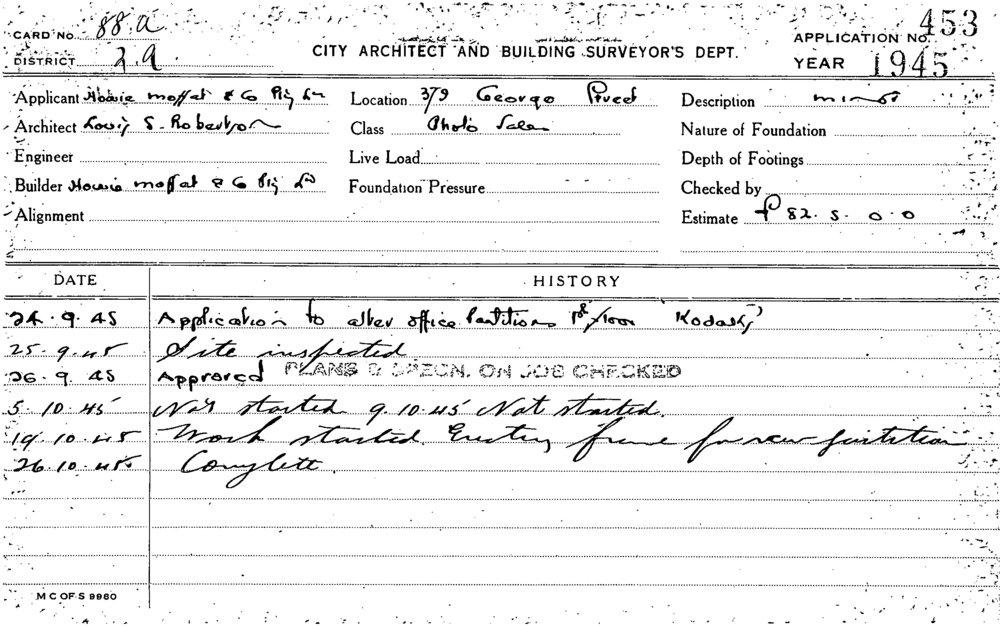 CARD No. 88.a
CITY ARCHITECT AND BUILDING SURVEYOR'S DEPT.
APPLICATION No. 453
DISTRICT 2.a
YEAR 1945
Applicant Howie moffat & Co Pty Ltd Location 379 George Street Description minor
Architect Louis S. Robertson Class Photo Sales Nature of Foundation
Engineer Live Load Depth of Footings
Builder Howie moffat & Co Pty Ltd Foundation Pressure Checked by
Alignment Estimate £ 82. 5. 0. 0
DATE HISTORY
24. 9. 45 Application to alter office Partitions 1st floor "Kodaks"
25. 9. 45 Site inspected
26. 9. 45 Approved PLANS & SPECN. ON JOB CHECKED
5. 10. 45 Not started 9.10.45 Not started.
19. 10. 45 Work started. Erecting frame for new partition
26. 10. 45 Complete.
M C OF S 9980